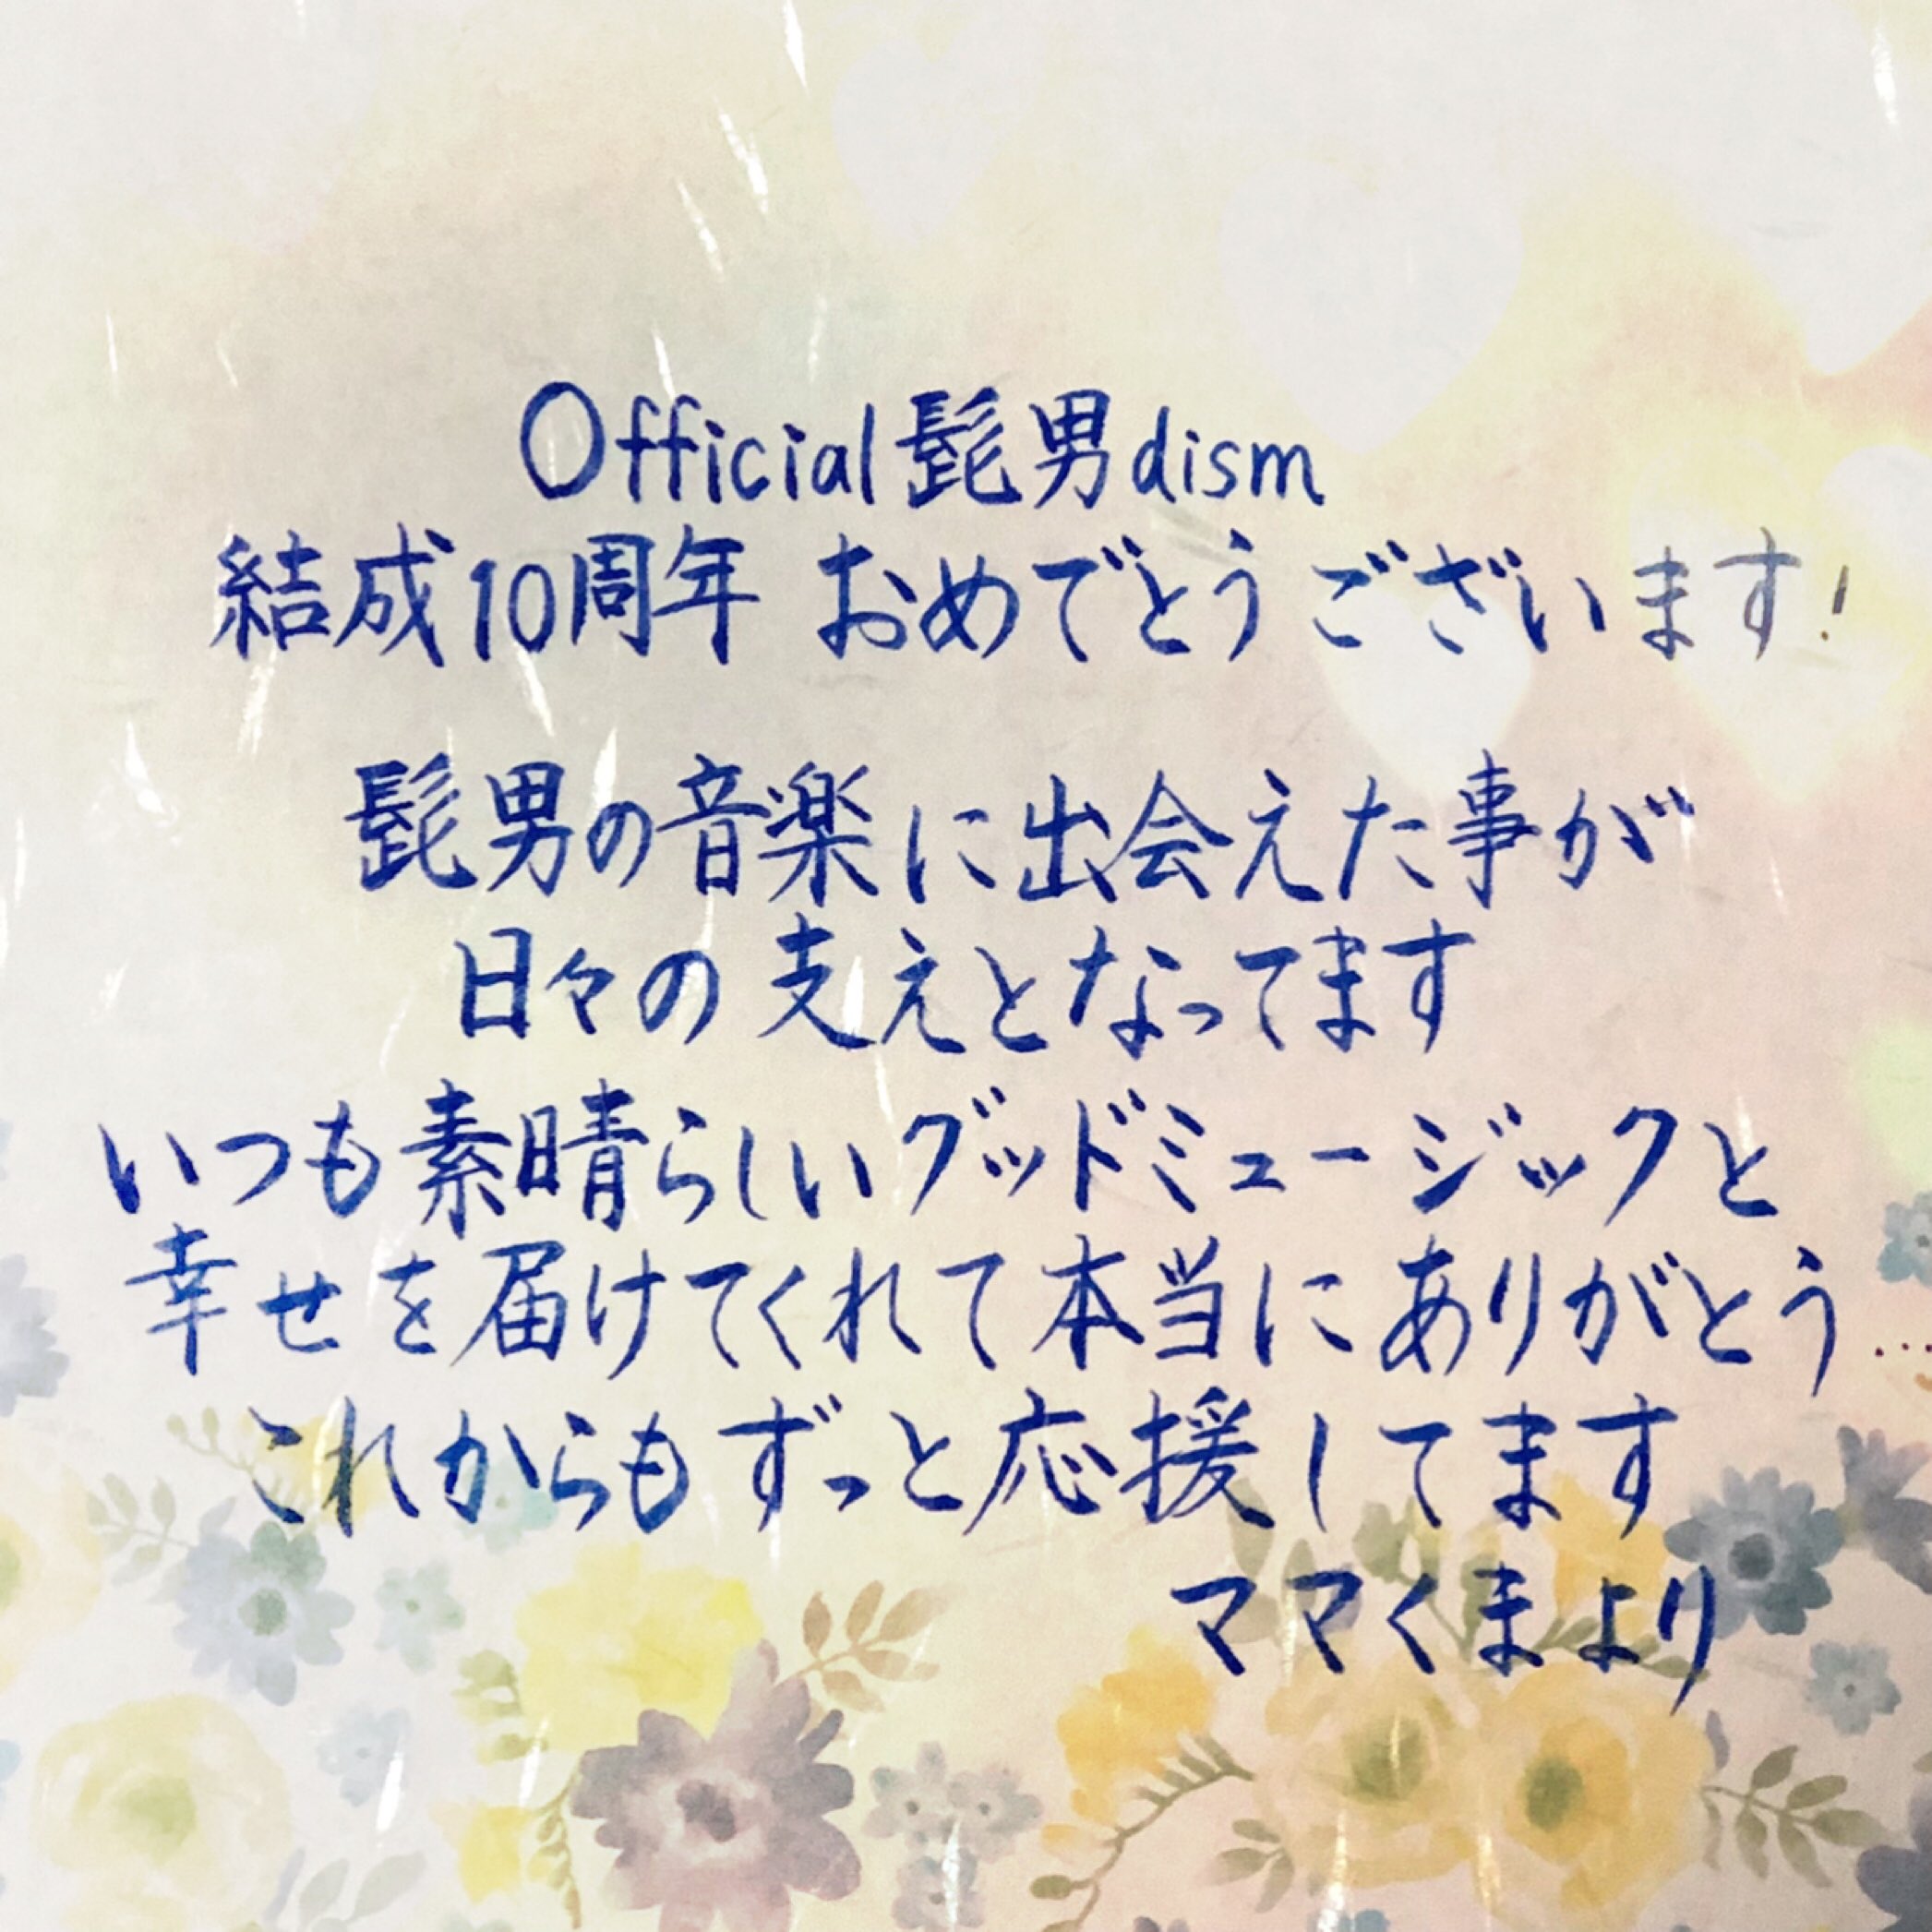 Official髭男dism
結成10周年 おめでとうございます!
髭男の音楽に出会えた事が
日々の支えとなってます
いつも素晴らしいグッドミュージックと
幸せを届けてくれて本当にありがとう…
これからもずっと応援してます
ママくまより